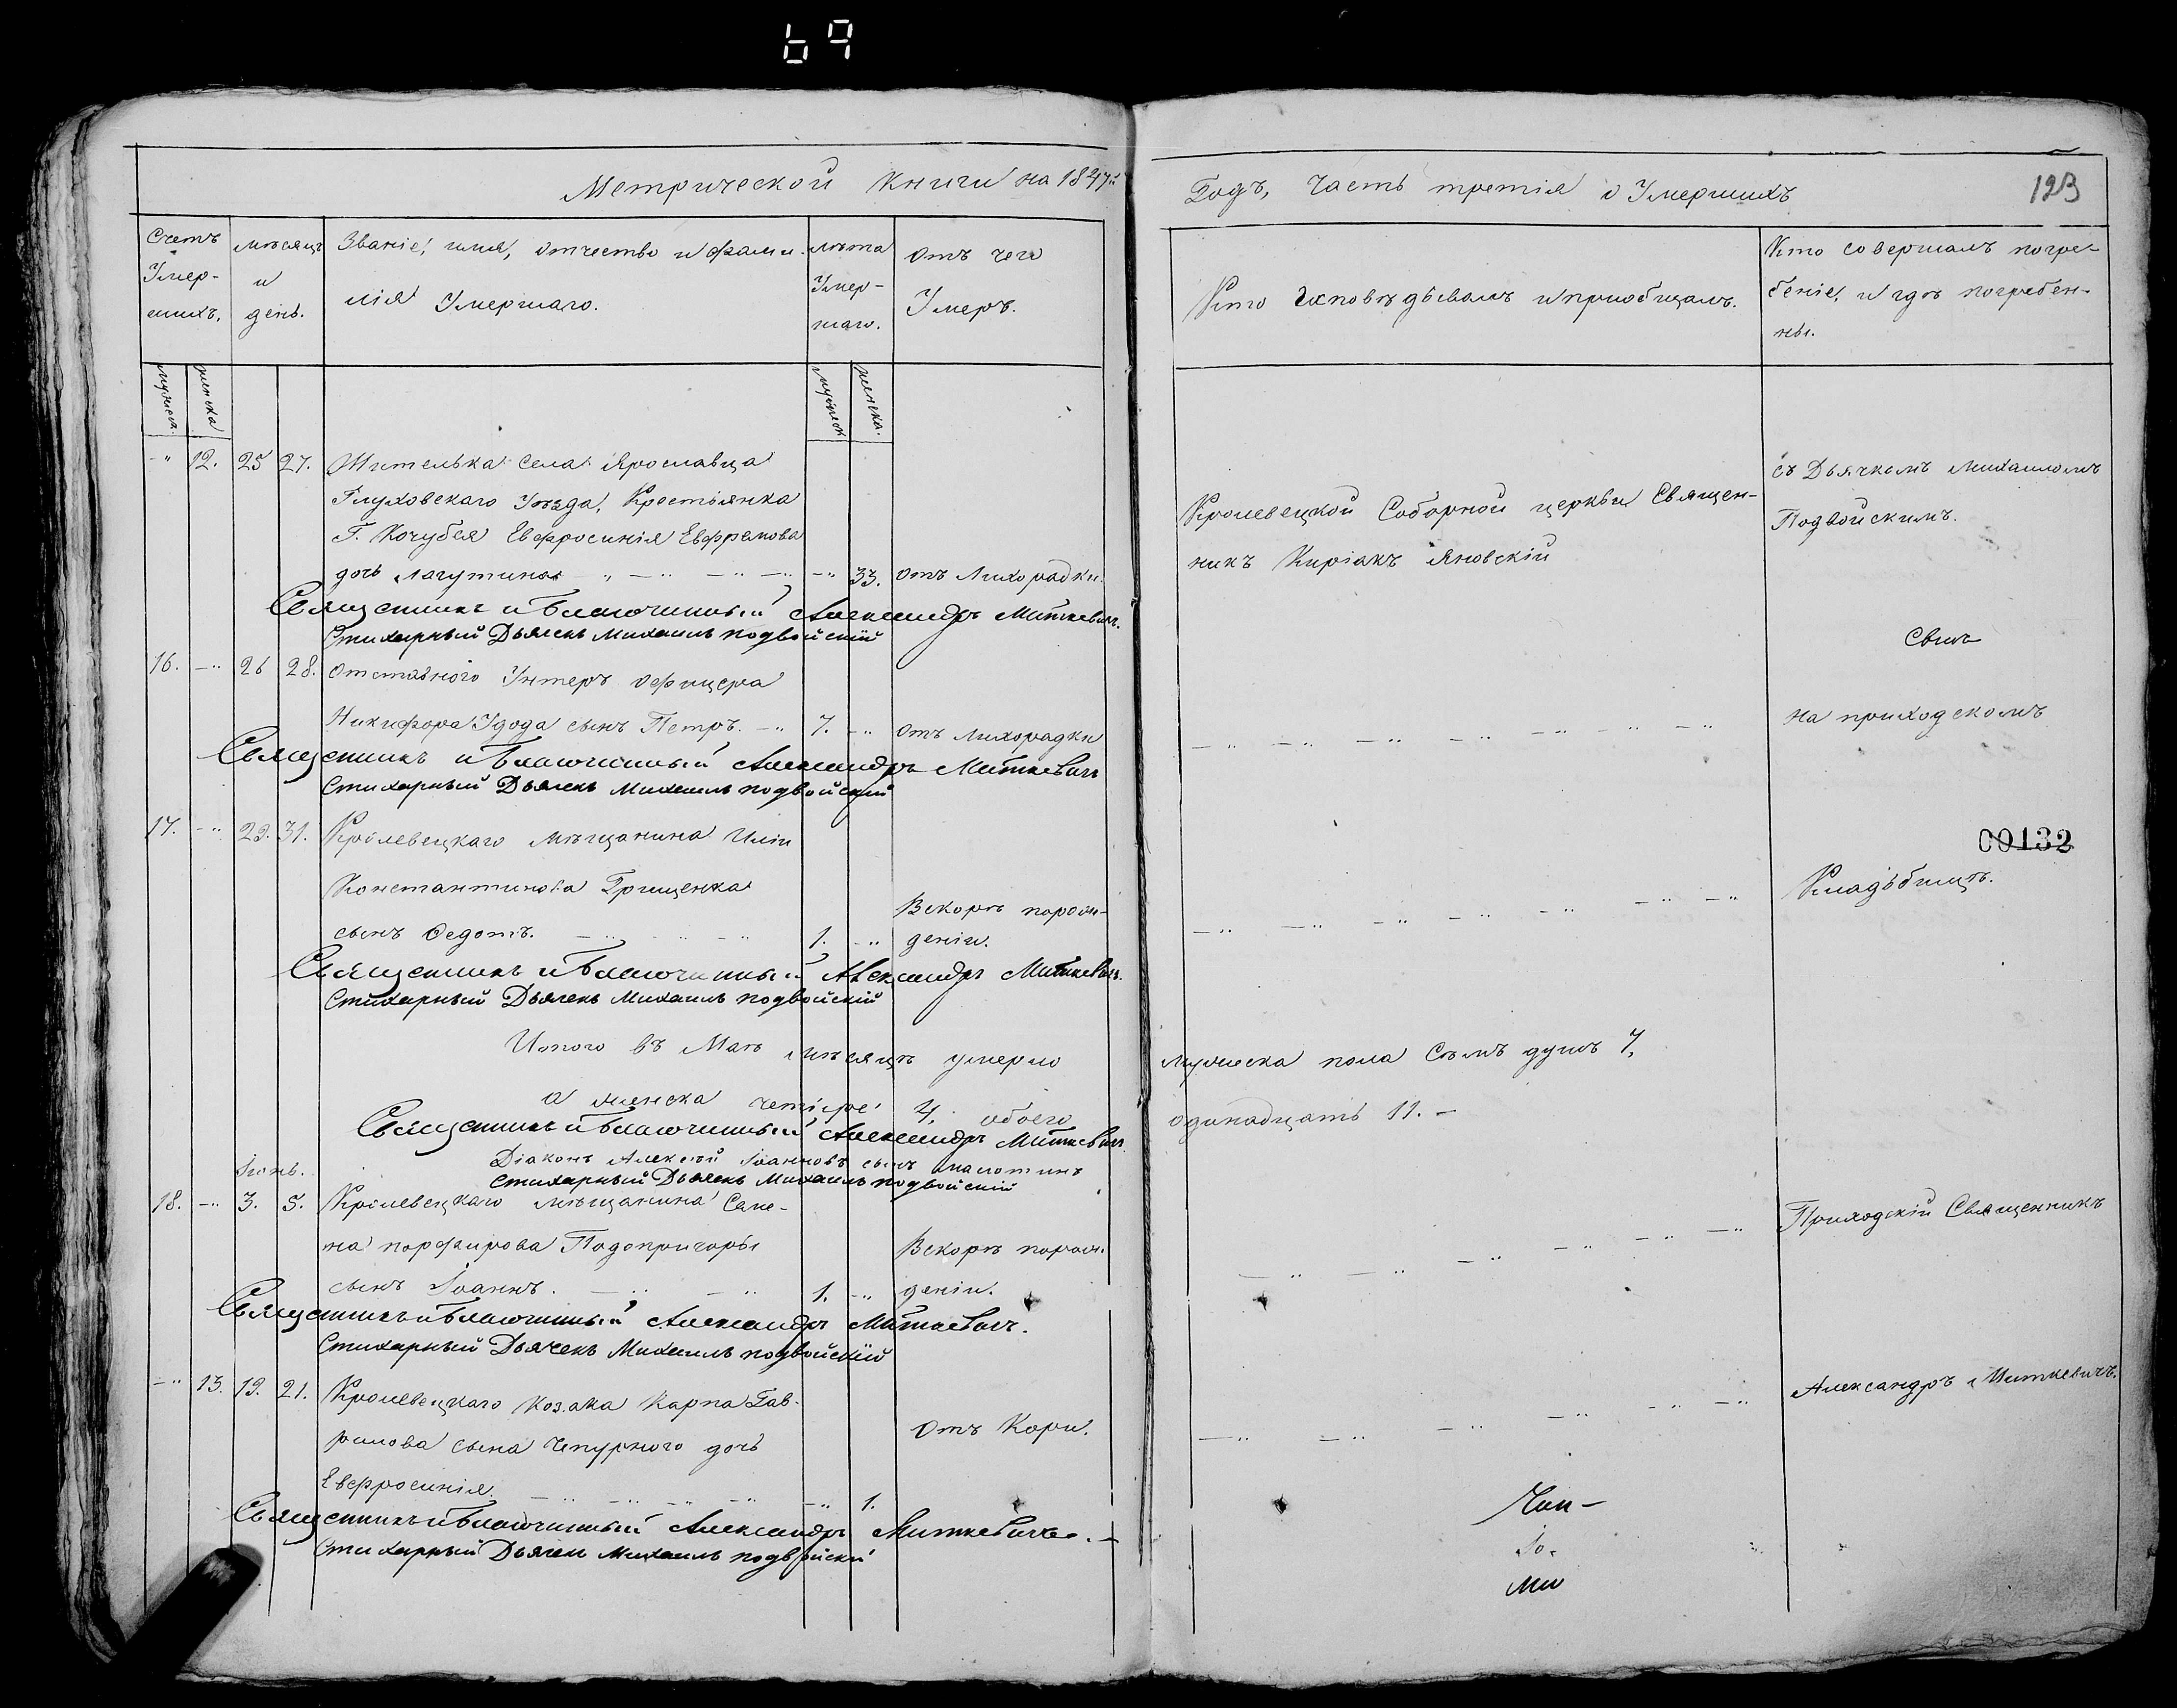 69
Метрической Книги на 1847й
Годъ, Часть третія о Умершихъ
123
Счетъ Умер-шихъ.
мѣсяцъ и день.
Званіе, имя, отчество и фами-
лія Умершаго.
лѣта Умер-шаго.
Отъ чего Умеръ.
Кто исповѣдывалъ и пріобщалъ.
Кто совершалъ погре-
беніе, и гдѣ погребен-
ны.
мужеск.
женска
мужеск
женска.
-" 12. 25 27. Жителька села Ярославца
Глуховскаго Уѣзда, Крестьянка
Г. Кочубея Евфросинія Евфремова
дочь Лагутина -" 33. отъ Лихорадки.
Кролевецкой Соборной церкви Священ-
никъ Киріакъ Яновскій
съ Дьячкомъ Михаиломъ
Подвойскимъ.
Священникъ и Благочинный Александръ Миткевичъ.
Стихарный Дьячекъ Михаилъ подвойскій
16. -" 26 28. Отставного Унтеръ офицера
Никифора Удода сынъ Петръ. -" 7. -" отъ лихорадки
на приходскомъ
Священникъ и Благочинный Александръ Миткевичъ
Стихарный Дьячекъ Михаилъ подвойский
17. -" 29. 31. Кролевецкаго мѣщанина Иліи
Константинова Грищенка
сынъ Федотъ. 1. -"
Вскорѣ порож-
деніи.
00132
Кладьбищѣ.
Священникъ и Благочинный Александръ Миткевичъ.
Стихарный Дьячекъ Михаилъ подвойскій
Итого въ Маѣ мѣсяцѣ умерло мужеска пола Семь душъ 7,
а женска четыре 4, обоего одинадцать 11. -
Священникъ и Благочинный Александръ Миткевичъ
Діаконъ Алексѣй Іоанновъ сынъ
Стихарный Дьячекъ Михаилъ подвойскій
Іюнь.
18. -" 3. 5. Кролевецкаго мѣщанина Саме-
на порфирова Подопригоры
сынъ Іоаннъ. 1. -"
Вскорѣ порож-
деніи.
Приходскій Священникъ
Священникъ и Благочинный Александръ Миткевичъ.
Стихарный Дьячекъ Михаилъ подвойскій
-" 13. 19. 21. Кролевецкаго козака Карпа Гав-
рилова сына Чепурного дочь
Евфросинія. -" 1.
Отъ Кори.
Александръ Миткевичъ.
Священникъ и Благочинный Александръ Миткевичъ. -
Стихарный Дьячекъ Михаилъ подвойскій